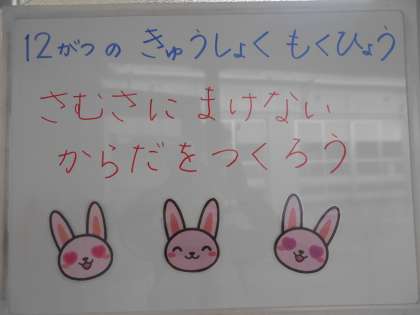 12がつの きゅうしょく もくひょう
さむさに まけない
からだを つくろう